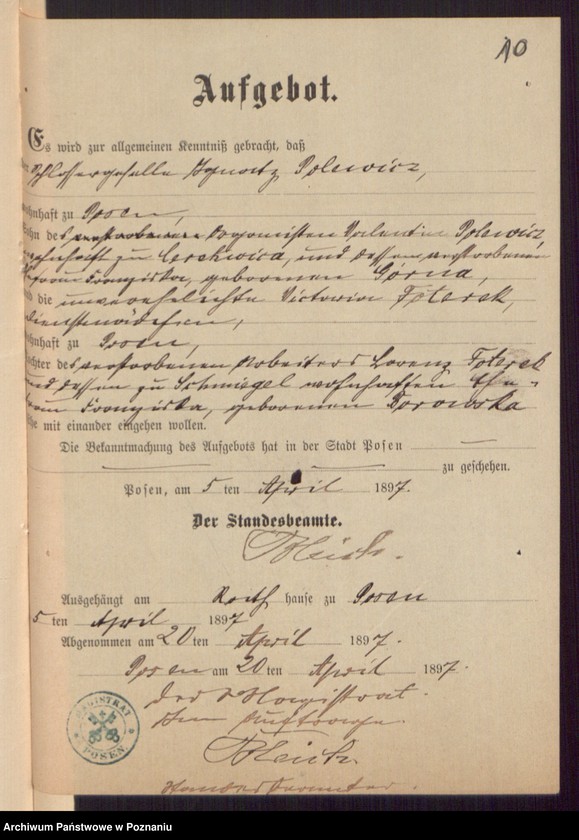 10
Aufgebot.
Es wird zur allgemeinen Kenntniß gebracht, daß
Schlossergeselle Ignatz Polewicz,
wohnhaft zu Posen,
Sohn des verstorbenen Organisten Valentin Polewicz,
wohnhaft zu Cerekwica, und dessen verstorbenen
Ehefrau Franziska, geborenen Górna,
und die unverehelichte Victoria Foterek,
Dienstmädchen,
wohnhaft zu Posen,
Tochter des verstorbenen Arbeiters Lorenz Foterek
und dessen zu Schmiegel wohnhaften Ehe-
frau Franziska, geborenen Borowska
Ehe mit einander eingehen wollen.
Die Bekanntmachung des Aufgebots hat in der Stadt Posen
zu geschehen.
Posen, am 5 ten April 1897.
Der Standesbeamte.
Ausgehängt am Rath hause zu Posen
5 ten April 1897
Abgenommen am 20 ten April 1897.
Posen am 20 ten April 1897.
Der Magistrat.
Im Auftrage.
MAGISTRAT
POSEN
Standesbeamter.
Archiwum Państwowe w Poznaniu